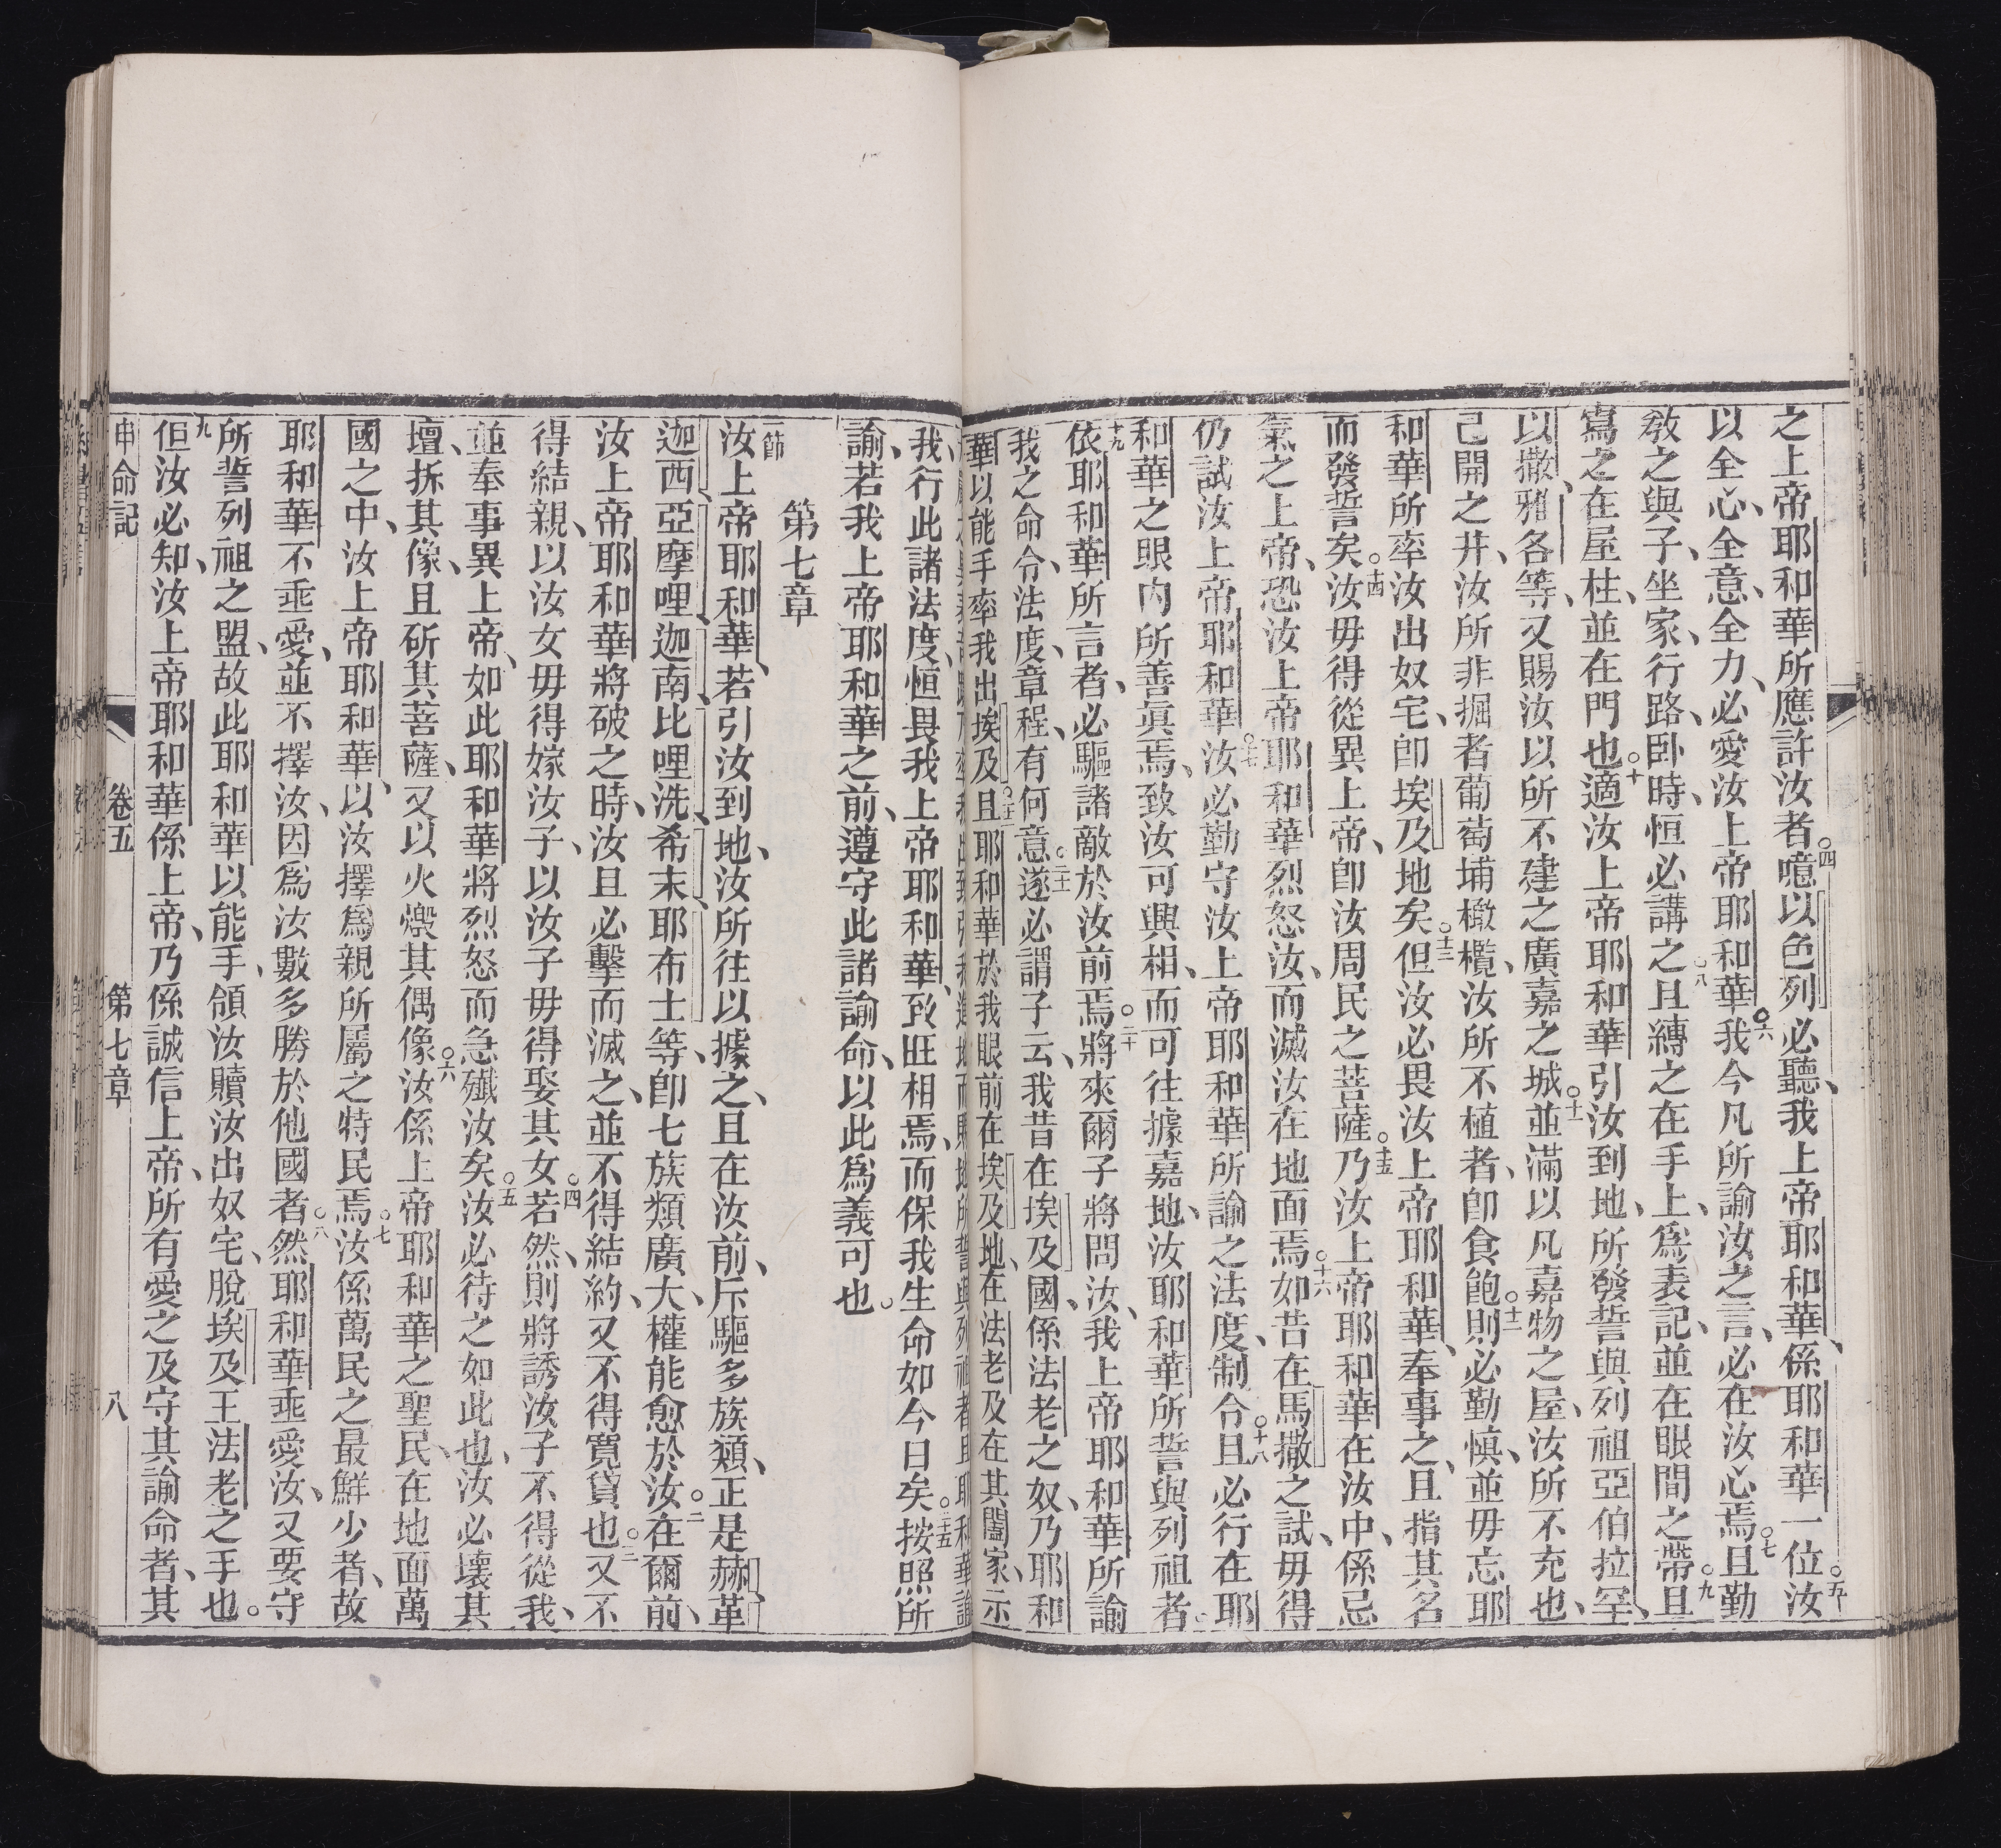 之上帝耶和華所應許汝者○四噫以色列必聽、我上帝耶和華、係耶和華一位○五汝
以全心、全意、全力、必愛汝上帝耶和華○六我今凡所諭汝之言、必在汝心焉○七且勤
教之與子、坐家、行路、臥時、恒必講之○八且縛之在手上、爲表記、並在眼間之帶○九且
寫之在屋柱、並在門也○十適汝上帝耶和華引汝到地、所發誓與列祖亞伯拉罕、
以撒、雅各等、又賜汝以所不建之廣嘉之城○十一並滿以凡嘉物之屋、汝所不充也、
己開之井、汝所非掘者葡萄埔橄欖、汝所不植者、卽食飽○十二則必勤慎、並毋忘耶
和華所率汝出奴宅、卽埃及地矣○十三但汝必畏汝上帝耶和華、奉事之、且指其名
而發誓矣○十四汝毋得從異上帝、卽汝周民之菩薩○十五乃汝上帝耶和華在汝中、係忌
氣之上帝、恐汝上帝耶和華烈怒汝、而滅汝在地面焉○十六如昔在馬撒之試、毋得
仍試汝上帝耶和華○十七汝必勤守汝上帝耶和華所諭之法度、制令○十八且必行在耶
和華之眼內所善眞焉、致汝可興相、而可往據嘉地、汝耶和華所誓與列祖者
十九依耶和華所言者、必驅諸敵於汝前焉○二十將來爾子將問汝、我上帝耶和華所諭
我之命令法度、章程、有何意○二十一遂必謂子云、我昔在埃及國、係法老之奴、乃耶和
華以能手率我出埃及○二十二且耶和華於我眼前在埃及地、在法老及在其闔家、示
我、行此諸法度、恒畏我上帝耶和華、致旺相焉、而保我生命如今日矣○二十五按照所
諭、若我上帝耶和華之前、遵守此諸諭命、以此爲義可也。
第七章
一節汝上帝耶和華、若引汝到地、汝所往以據之、且在汝前、斥驅多族類、正是赫、革
迦西、亞摩哩、迦南、比哩洗、希未、耶布士等、卽七族類廣大、權能愈於汝○二在爾前、
汝上帝耶和華將破之時、汝且必擊而滅之、並不得結約、又不得寬貸也○三又不
得結親、以汝女毋得嫁汝子、以汝子毋得娶其女○四若然、則將誘汝子不得從我、
並奉事異上帝、如此耶和華將烈怒而急殲汝矣○五汝必待之如此也、汝必壞其
壇、拆其像、且斫其菩薩、又以火燬其偶像○六汝係上帝耶和華之聖民、在地面萬
國之中、汝上帝耶和華、以汝擇爲親所屬之特民焉○七汝係萬民之最鮮少者、故
耶和華不乖愛、並不擇汝、因爲汝數多勝於他國者○八然耶和華乖愛汝、又要守
所誓列祖之盟、故此耶和華以能手、領汝贖汝出奴宅、脫埃及王法老之手也。
九但汝必知、汝上帝耶和華係上帝、乃係誠信上帝、所有愛之及守其諭命者、其
申命記　卷五　第七章　八